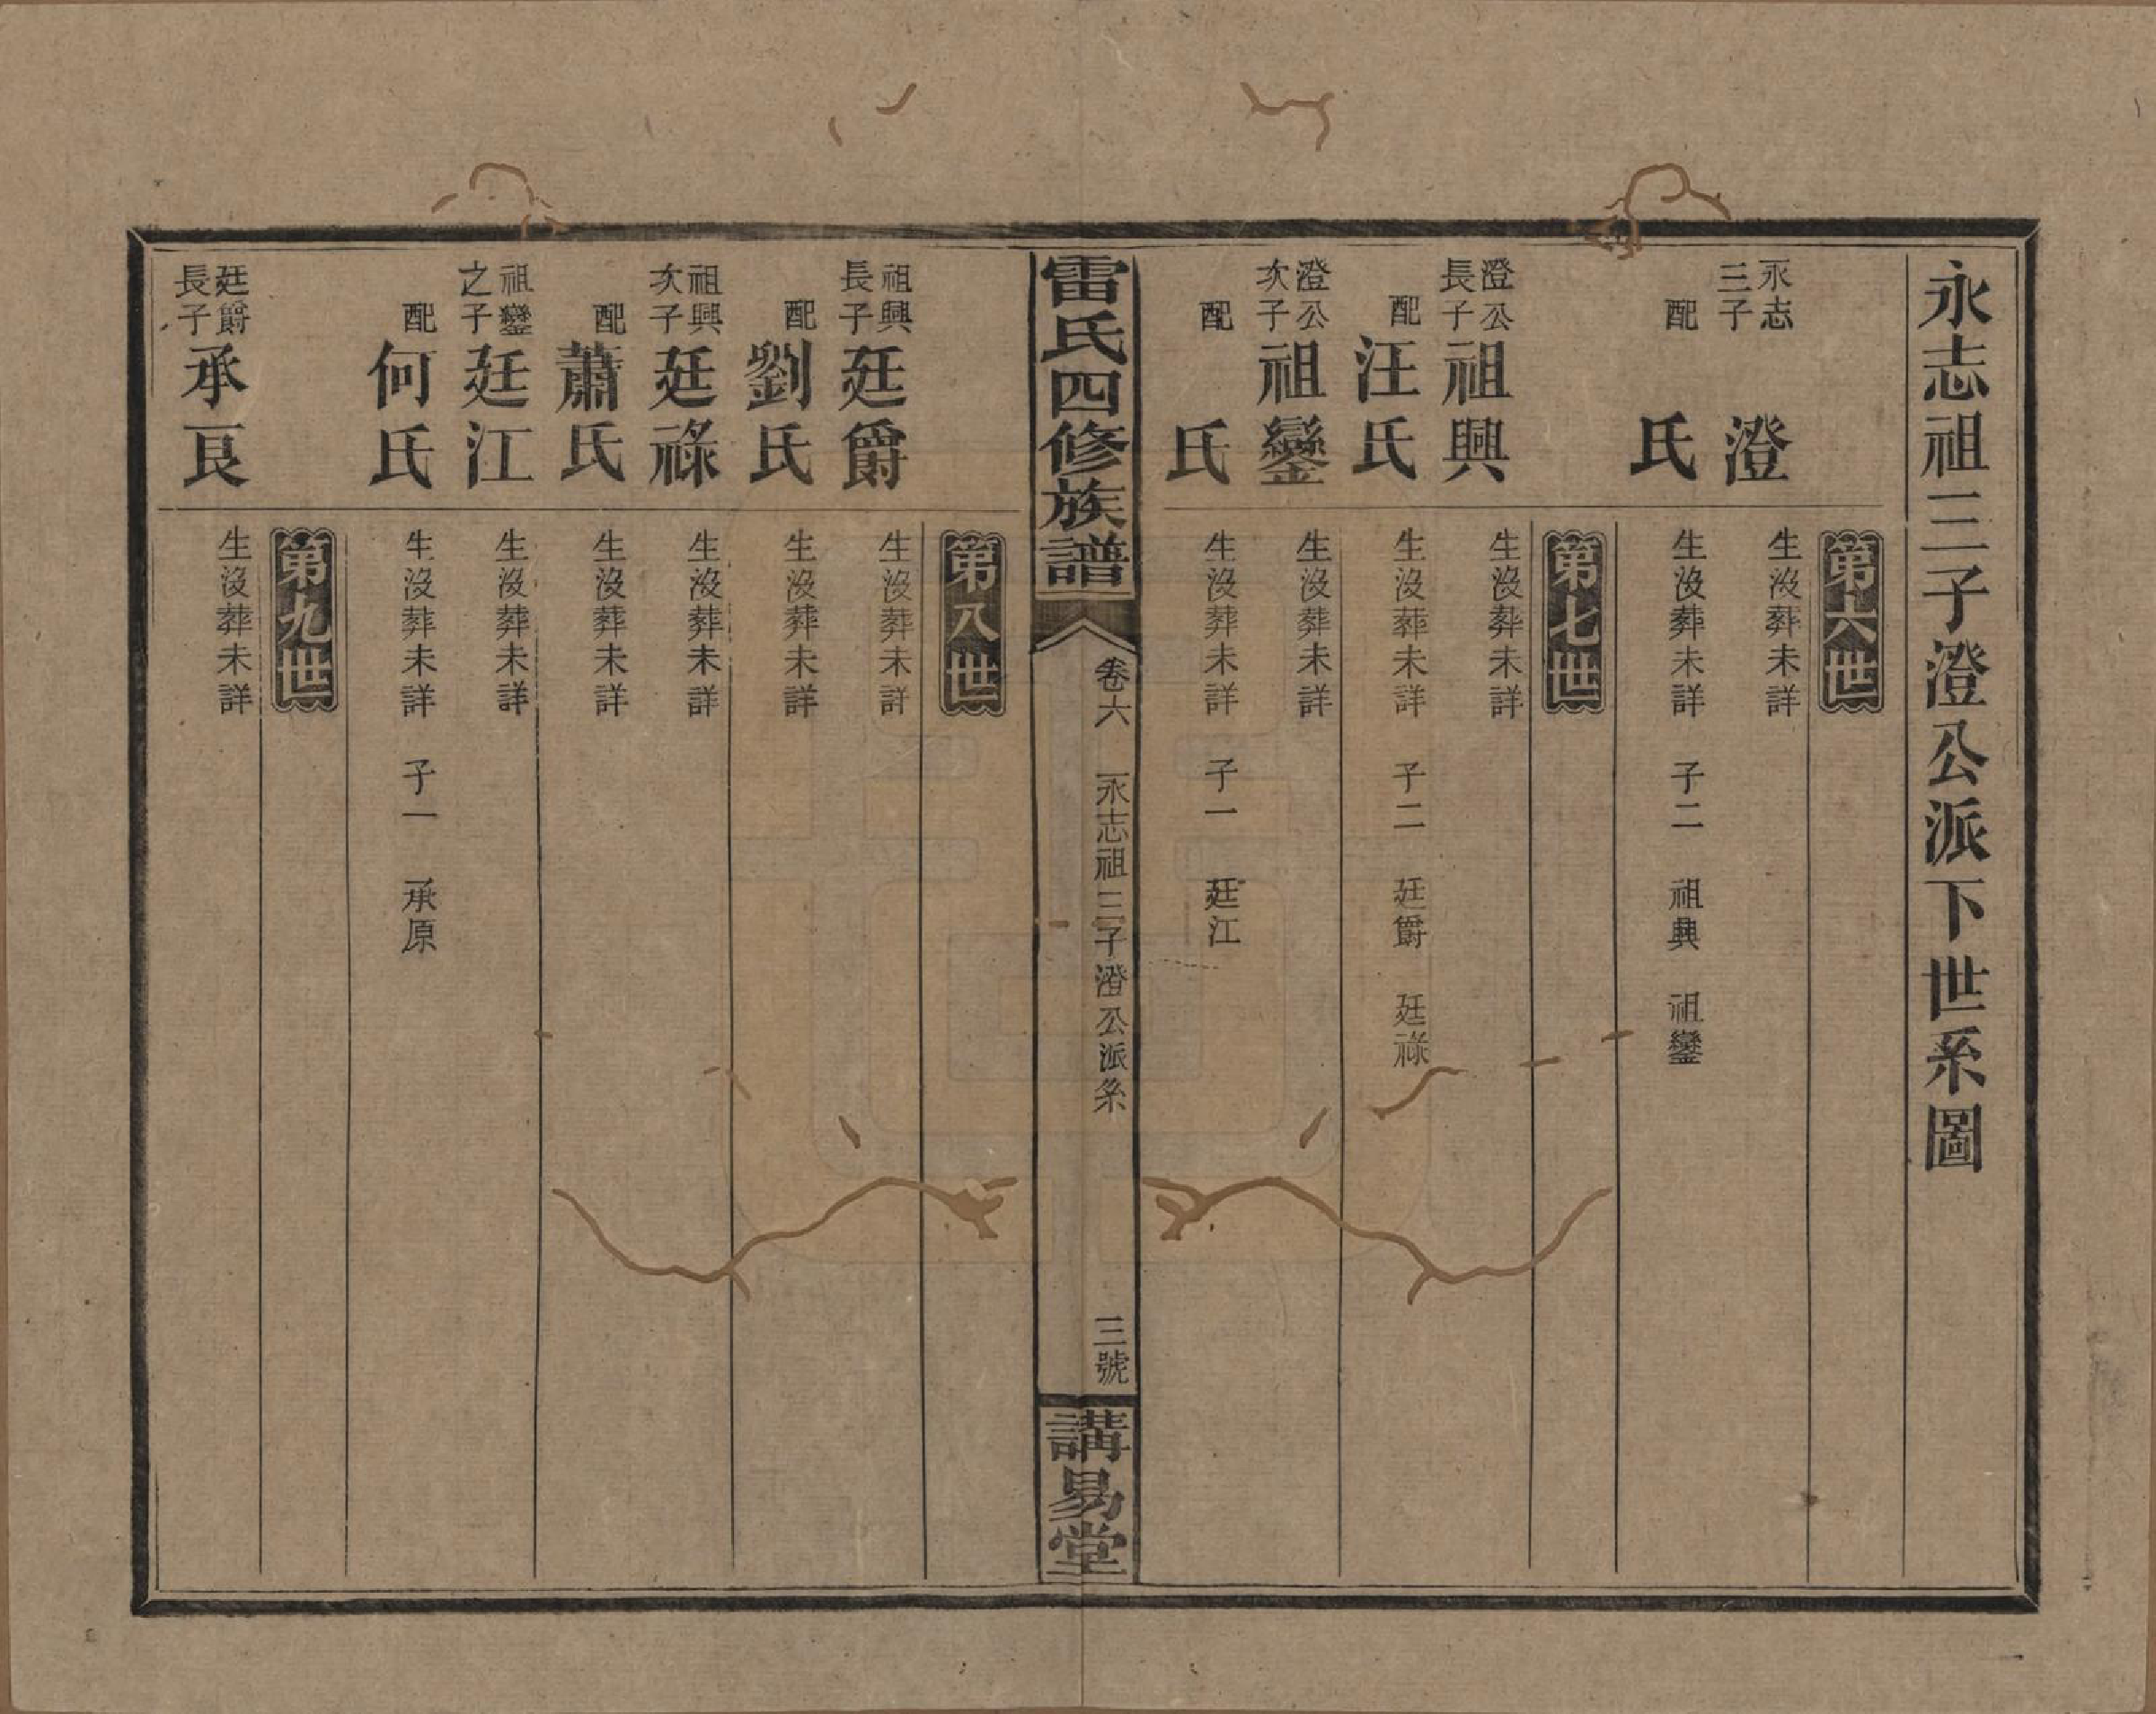 永志祖三子澄公派下世系圖
第六世
永志三子 澄 生沒葬未詳
配 氏 生沒葬未詳 子二 祖興 祖鑾
第七世
澄公長子 祖興 生沒葬未詳
配 汪氏 生沒葬未詳 子二 廷爵 廷祿
澄公次子 祖鑾 生沒葬未詳
配 氏 生沒葬未詳 子一 廷江
雷氏四修族譜 卷六 永志祖三子澄公派系 三號 講易堂
第八世
祖興長子 廷爵 生沒葬未詳
配 劉氏 生沒葬未詳
祖興次子 廷祿 生沒葬未詳
配 蕭氏 生沒葬未詳
祖鑾之子 廷江 生沒葬未詳
配 何氏 生沒葬未詳 子一 承原
第九世
廷爵長子 承良 生沒葬未詳